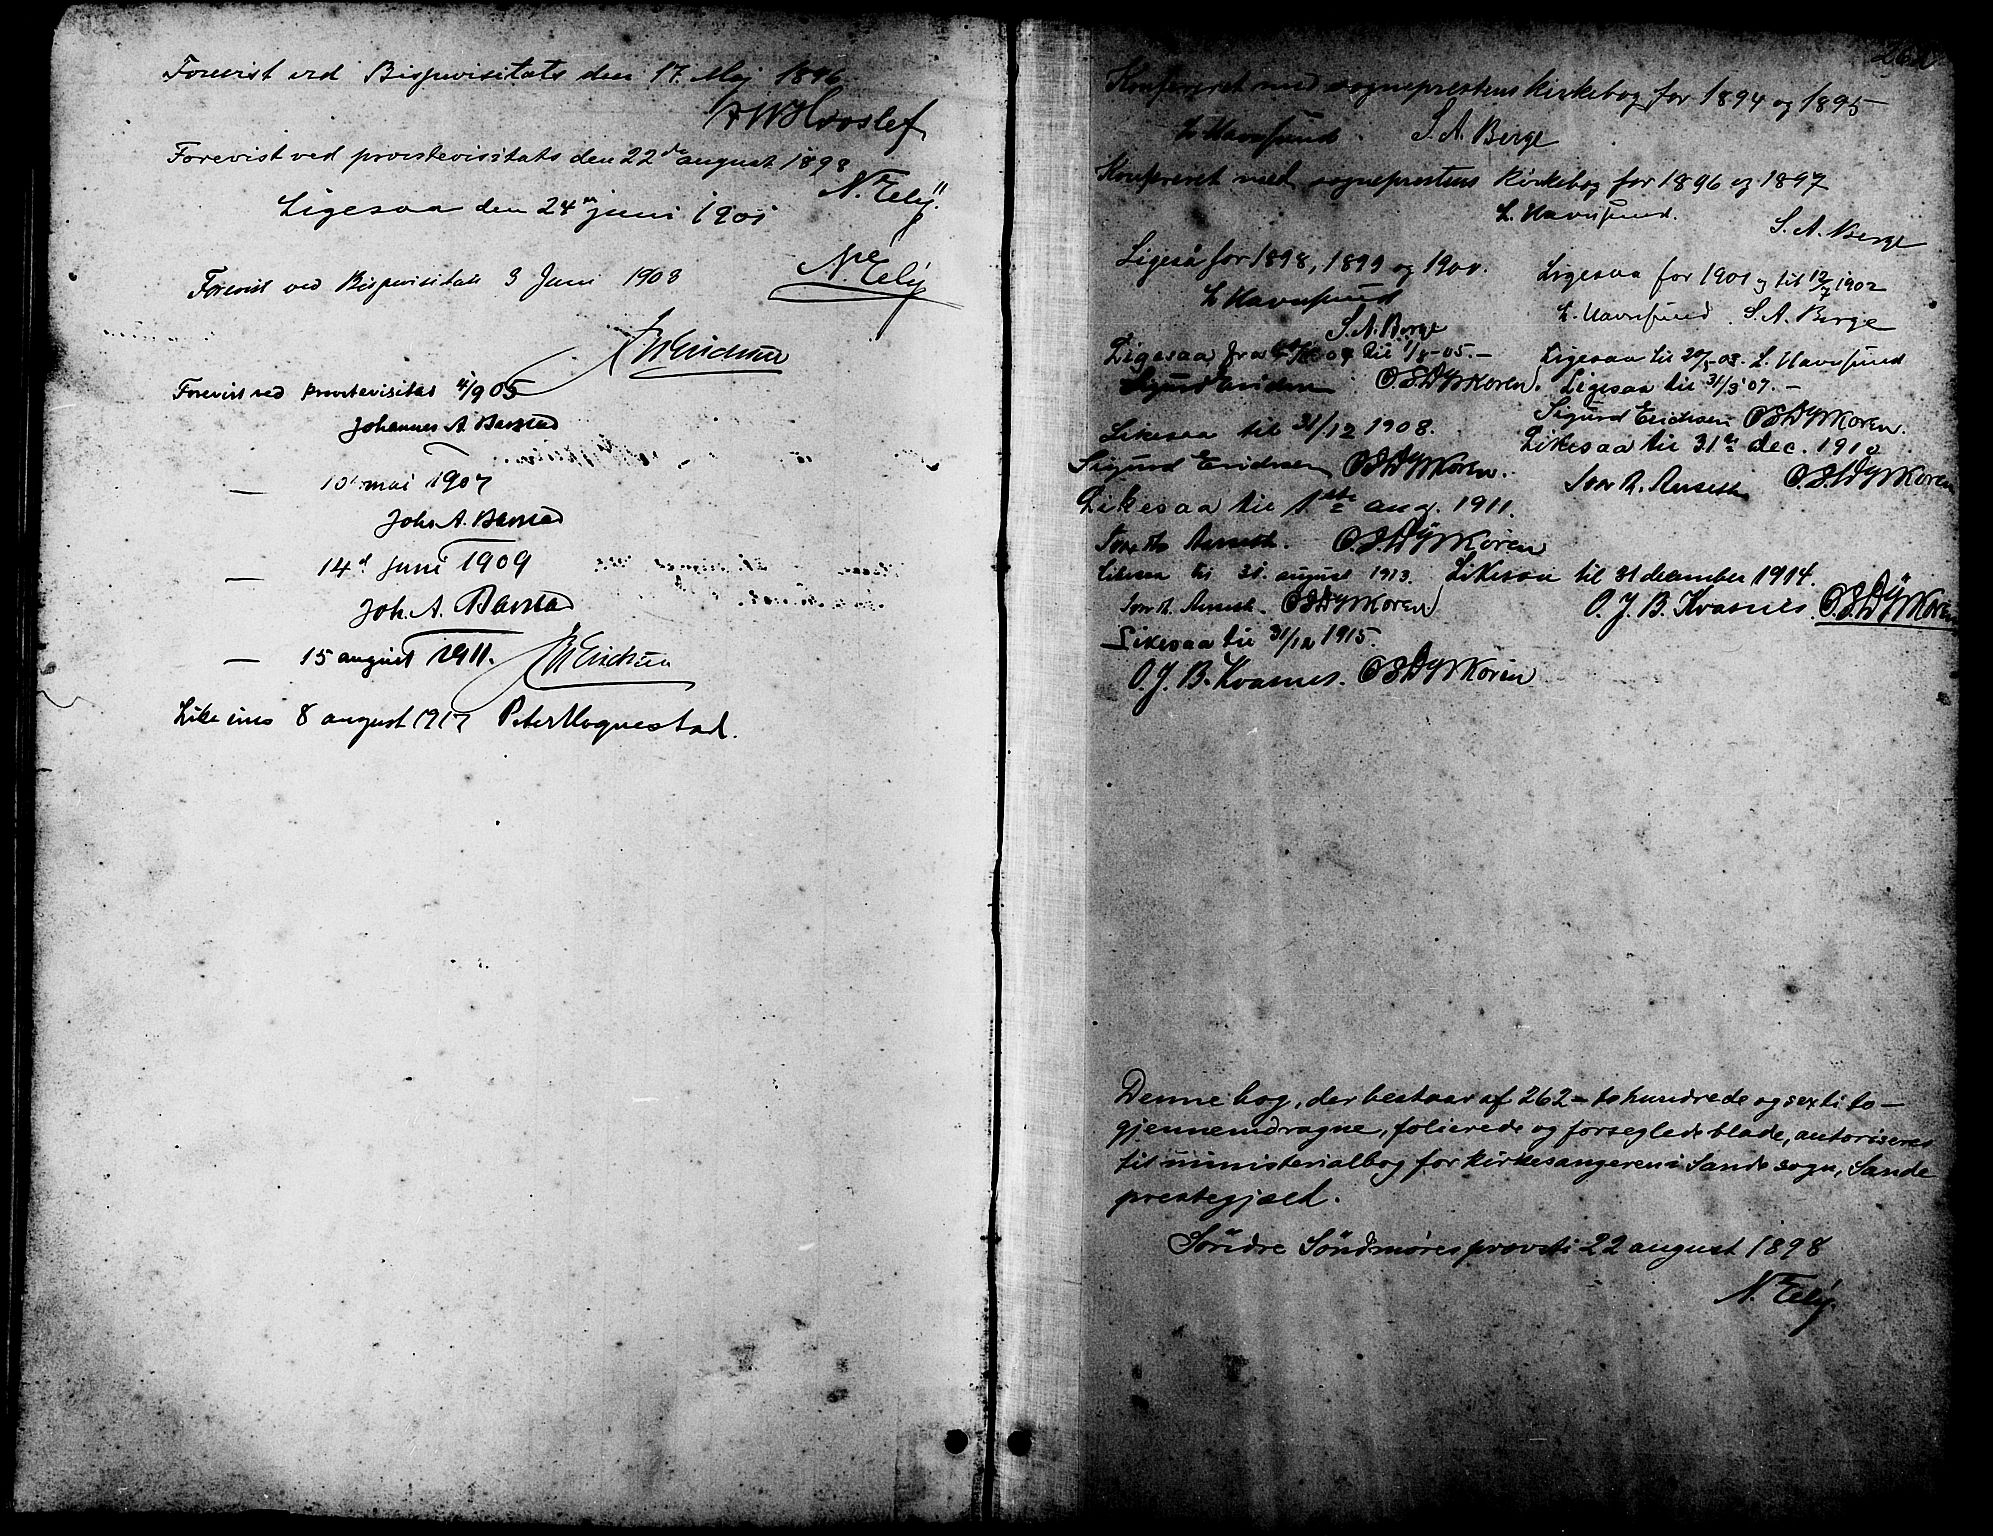 Forevist ved Bispevisitats den 17. Maj 1896
Forevist ved provstevisitats den 22de august 1898
N. Eeg.
Ligesaa den 24de juni 1901
N. Eeg
Forevist ved Bispevisitats 3 Juni 1903
Forevist ved Provstevisitas 4/9 05
Johannes A. Barstad
— 10' mai 1907
Joh. A. Barstad
— 14d juni 1909
Joh. A. Barstad
— 15 august 1911.
Like eins 8 august 1917 Peter Hognestad.
262
Konfereret med sogneprestens kirkebog for 1894 og 1895
L. Havnsund. S. A. Berge
Konfereret med sogneprestens kirkebog for 1896 og 1897
L. Havnsund. S. A. Berge
Ligeså for 1898, 1899 og 1900.
L. Havnsund
S. A. Berge
Ligesaa for 1901 og til 12/7 1902
L. Havnsund. S. A. Berge
Ligesaa fra 04 til 1/8-05.—
Sigurd Eriksen O.S. Dy Koren.
Ligesaa til 03. L. Havnsund
Ligesaa til 31/3 07.—
Sigurd Eriksen O.S. Dy Koren.
Likesaa til 31/12 1908.
Sigurd Eriksen O.S. Dy Koren.
Likesaa til 31te dec. 1910
O.S. Dy Koren
Likesaa til 1ste aug. 1911.
O.S. Dy Koren
Likesaa til 31. august 1913.
O.S. Dy Koren
Likesaa til 31 december 1914.
O. J. B. Kvasnes. O.S. Dy Koren
Likesaa til 31/12 1915.
O. J. B. Kvasnes. O.S. Dy Koren
Denne bog, der bestaar af 262 – to hundrede og sexti to –
gjennemdragne, folierede og forseglede blade, autoriseres
til ministerialbog for kirkesangeren i Sande sogn, Sande
prestegjæld.
Söndre Söndmöres provsti 22 august 1898
N. Eeg.